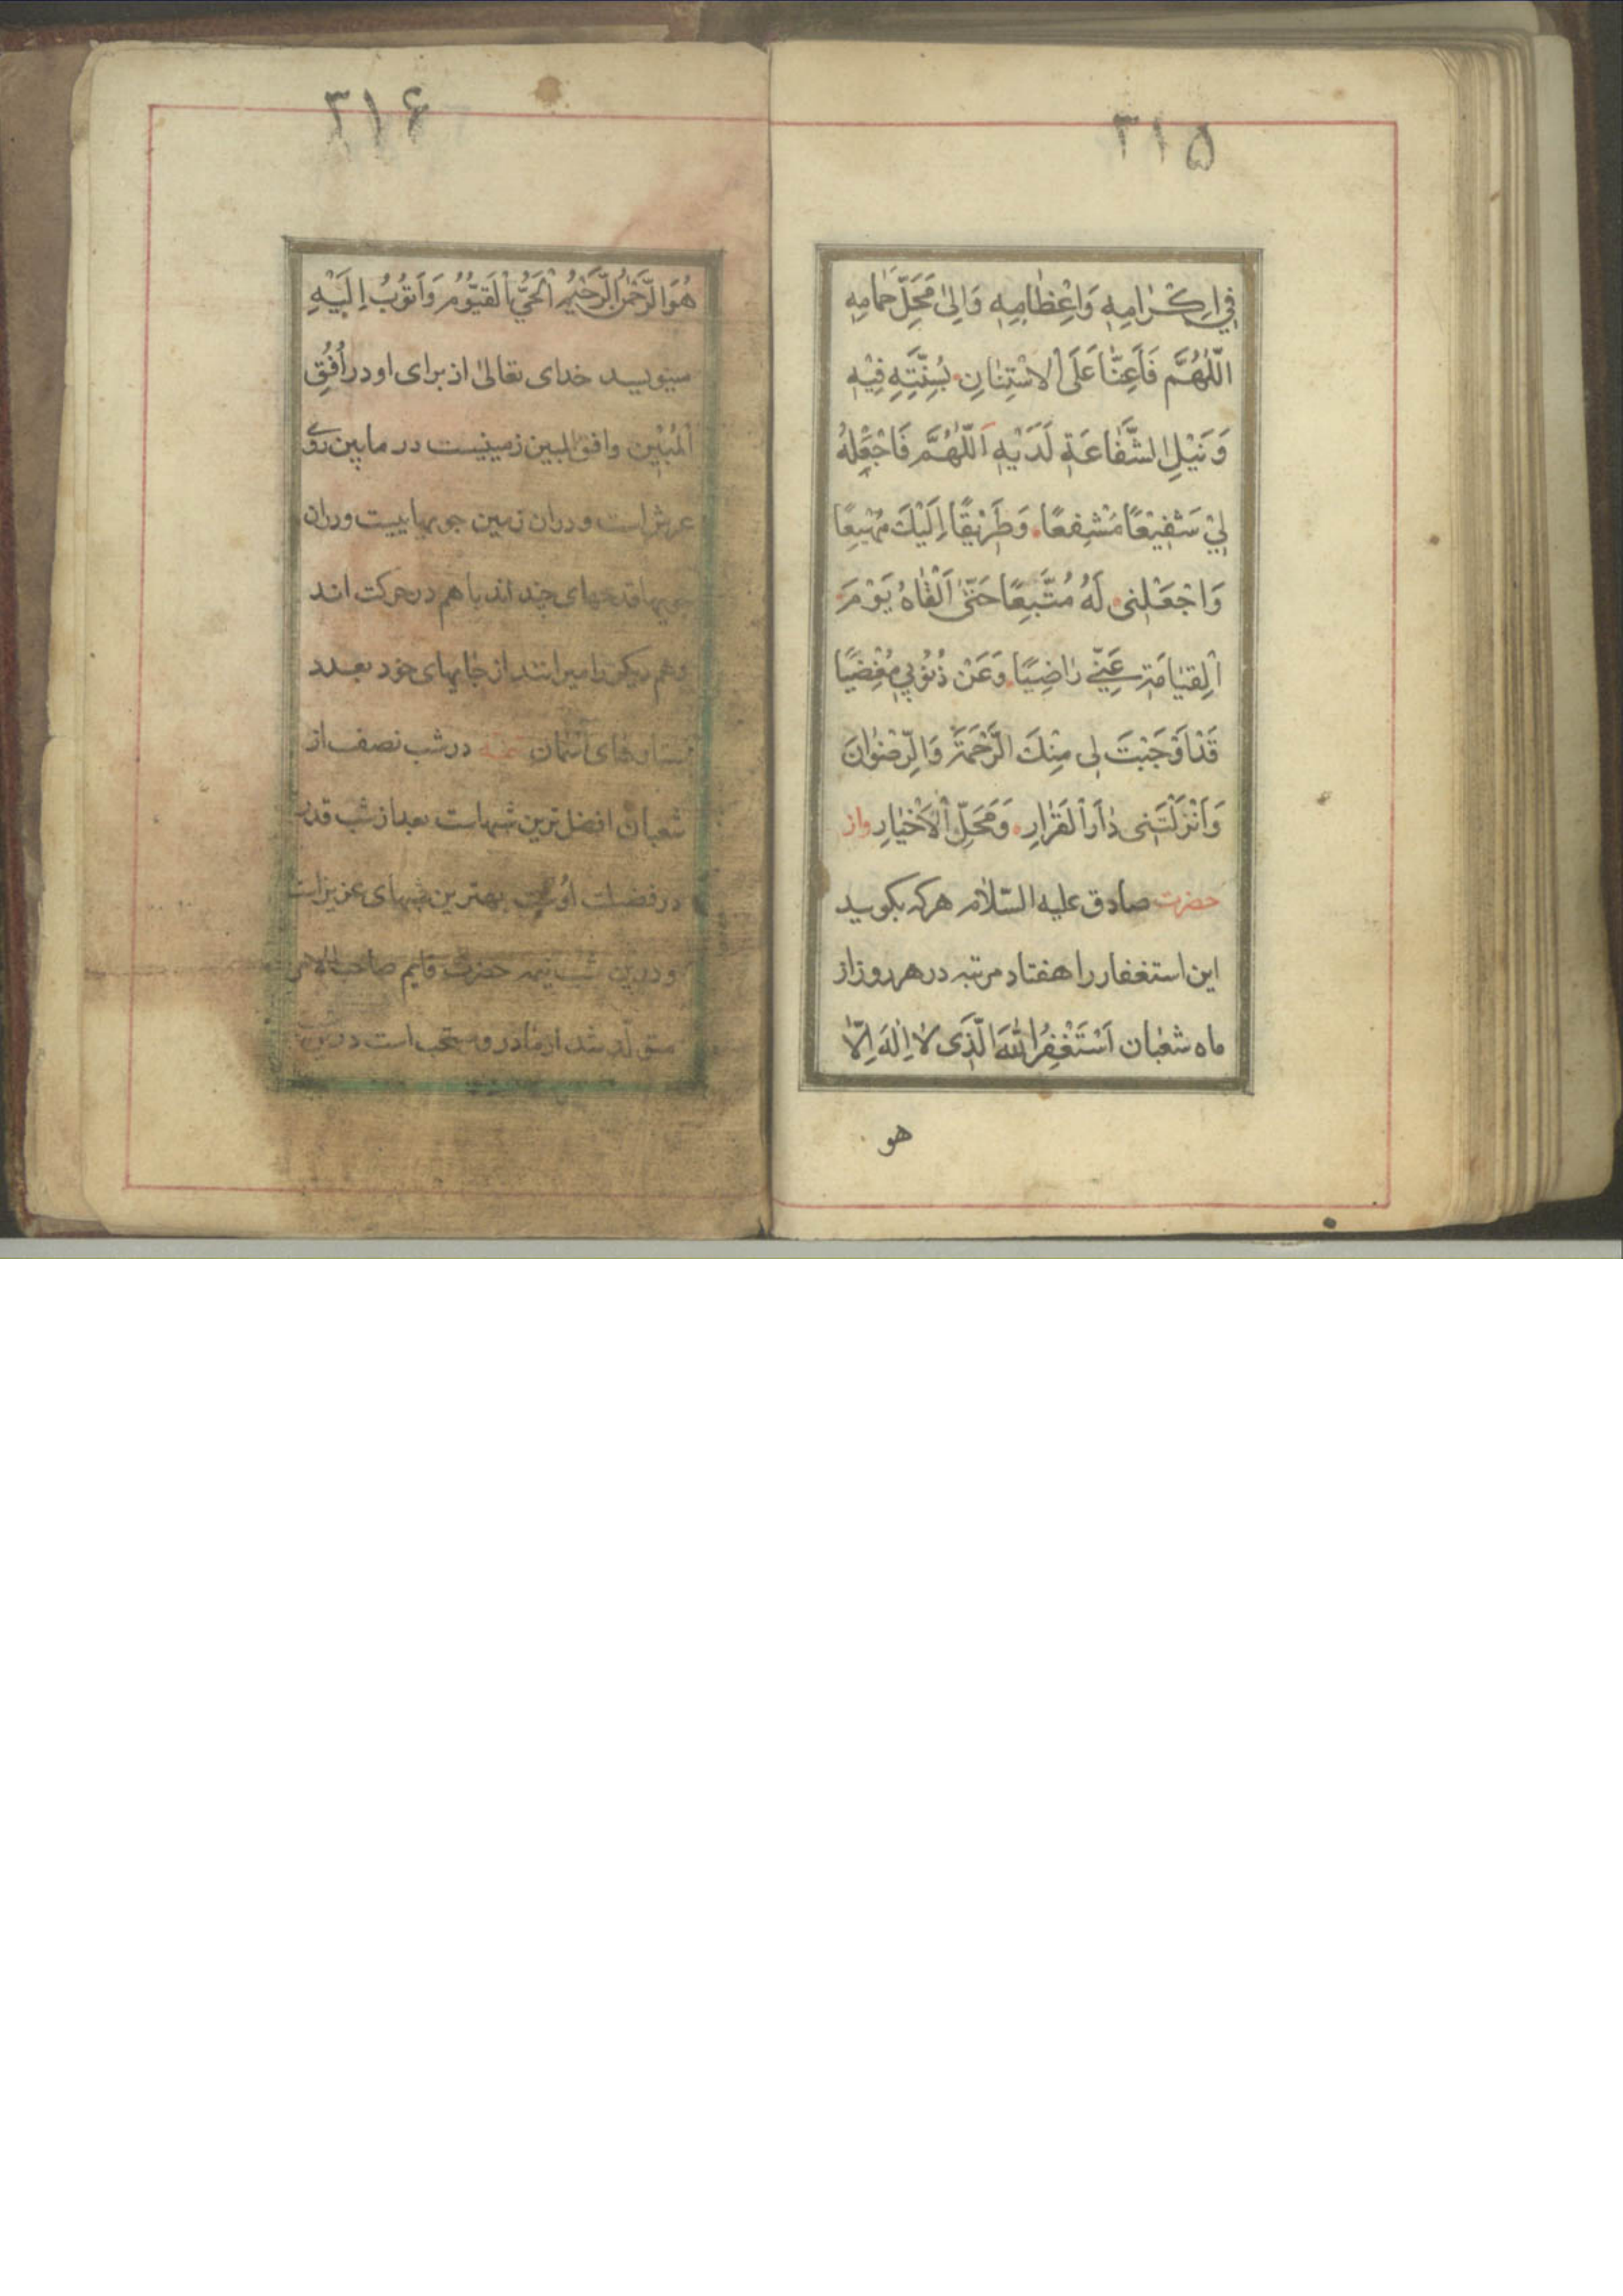 ۳۱۵
فِي اِكْرٰامِهِ وَاِعْظٰامِهِ وَاِلىٰ مَحَلِّ حَمامِهِ
اَللّٰهُمَّ فَاَعِنّٰا عَلَى الاِسْتِنٰانِ بِسُنَّتِهِ فِيْهِ
وَنَيْلِ الشَّفٰاعَةِ لَدَيْهِ اَللّٰهُمَّ فَاجْعَلْهُ
لِيْ شَفِيْعًا مُشَفَّعًا وَطَرِيْقًا اِلَيْكَ مَهْيَعًا
وَاجْعَلْنِى لَهُ مُتَّبِعًا حَتّىٰ اَلْقٰاهُ يَوْمَ
الْقِيٰامَةِ عَنِّي رٰاضِيًا وَعَنْ ذُنُوْبِي مُغْضِيًا
قَدْ اَوْجَبْتَ لِى مِنْكَ الرَّحْمَةَ وَالرِّضْوٰانَ
وَاَنْزَلْتَنِى دٰارَ الْقَرٰارِ وَمَحَلَّ الْاَخْيٰارِ واز
حضرت صادق علیه السّلام هرکه بکوید
این استغفار را هفتاد مرتبه در هر روز از
ماه شعبان اَسْتَغْفِرُ اللّٰهَ الَّذِى لاٰ اِلٰهَ اِلّاٰ
هو
۳۱۶
هُوَ الرَّحْمٰنُ الرَّحِيْمُ الْحَيُّ الْقَيُّوْمُ وَاَتُوْبُ اِلَيْهِ
مینویسد خدای تعالیٰ از برای او در اُفُقِ
الْمُبِیْن وافق المبین زمینیست در مابین روی
عرش است و در آن زمین جویهاییست و در آن
جویها قدحهای چند اند با هم در حرکت اند
وهم دیکر را میرانند از جایهای خود بعدد
ستاره‌های آسمان در شب نصف از
شعبان افضل ترین شبهاست بعد از شب قدر
در فضیلت بهترین شبهای عزیز است
و درین شب نیمه حضرت قایم صاحب الامر
متولّد شد از مادر و مستحب است درین